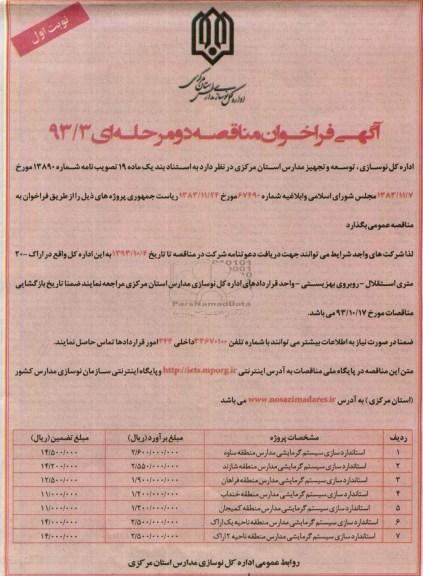 نوبت اول
اداره کل نوسازی مدارس استان مرکزی
آگهی فراخوان مناقصه دو مرحله ای ۹۳/۳
اداره کل نوسازی، توسعه و تجهیز مدارس استان مرکزی در نظر دارد به استناد بند یک ماده ۱۹ تصویب نامه شماره ۱۳۸۹۰ مورخ
۱۳۸۳/۱۱/۷ مجلس شورای اسلامی و ابلاغیه شماره ۶۷۴۹۰ مورخ ۱۳۸۳/۱۱/۲۴ ریاست جمهوری پروژه های ذیل را از طریق فراخوان به
مناقصه عمومی بگذارد
لذا شرکت های واجد شرایط می توانند جهت دریافت دعوتنامه شرکت در مناقصه تا تاریخ ۱۳۹۳/۱۰/۴ به این اداره کل واقع در اراک - ۲۰
متری استقلال - روبروی بهزیستی - واحد قراردادهای اداره کل نوسازی مدارس استان مرکزی مراجعه نمایند ضمنا تاریخ بازگشایی
مناقصات مورخ ۹۳/۱۰/۱۷ می باشد.
ضمنا در صورت نیاز به اطلاعات بیشتر می توانند با شماره تلفن ۳۳۶۷۰۱۰۰ داخلی ۲۴۴ امور قراردادها تماس حاصل نمایند.
متن این مناقصه در پایگاه ملی مناقصات به آدرس اینترنتی http://iets.mporg.ir و پایگاه اینترنتی سازمان نوسازی مدارس کشور
(استان مرکزی) به آدرس www.nosazimadares.ir می باشد
ردیف مشخصات پروژه مبلغ برآورد (ریال) مبلغ تضمین (ریال)
۱ استاندارد سازی سیستم گرمایشی مدارس منطقه ساوه ۲/۶۰۰/۰۰۰/۰۰۰ ۱۴/۵۰۰/۰۰۰
۲ استاندارد سازی سیستم گرمایشی مدارس منطقه شازند ۲/۵۵۰/۰۰۰/۰۰۰ ۱۴/۲۰۰/۰۰۰
۳ استاندارد سازی سیستم گرمایشی مدارس منطقه فراهان ۱/۹۰۰/۰۰۰/۰۰۰ ۱۲/۵۰۰/۰۰۰
۴ استاندارد سازی سیستم گرمایشی مدارس منطقه خنداب ۱/۲۰۰/۰۰۰/۰۰۰ ۱۱/۰۰۰/۰۰۰
۵ استاندارد سازی سیستم گرمایشی مدارس منطقه کمیجان ۱/۲۰۰/۰۰۰/۰۰۰ ۱۱/۰۰۰/۰۰۰
۶ استاندارد سازی سیستم گرمایشی مدارس منطقه ناحیه یک اراک ۲/۵۰۰/۰۰۰/۰۰۰ ۱۴/۰۰۰/۰۰۰
۷ استاندارد سازی سیستم گرمایشی مدارس منطقه ناحیه ۲ اراک ۲/۵۰۰/۰۰۰/۰۰۰ ۱۴/۰۰۰/۰۰۰
روابط عمومی اداره کل نوسازی مدارس استان مرکزی